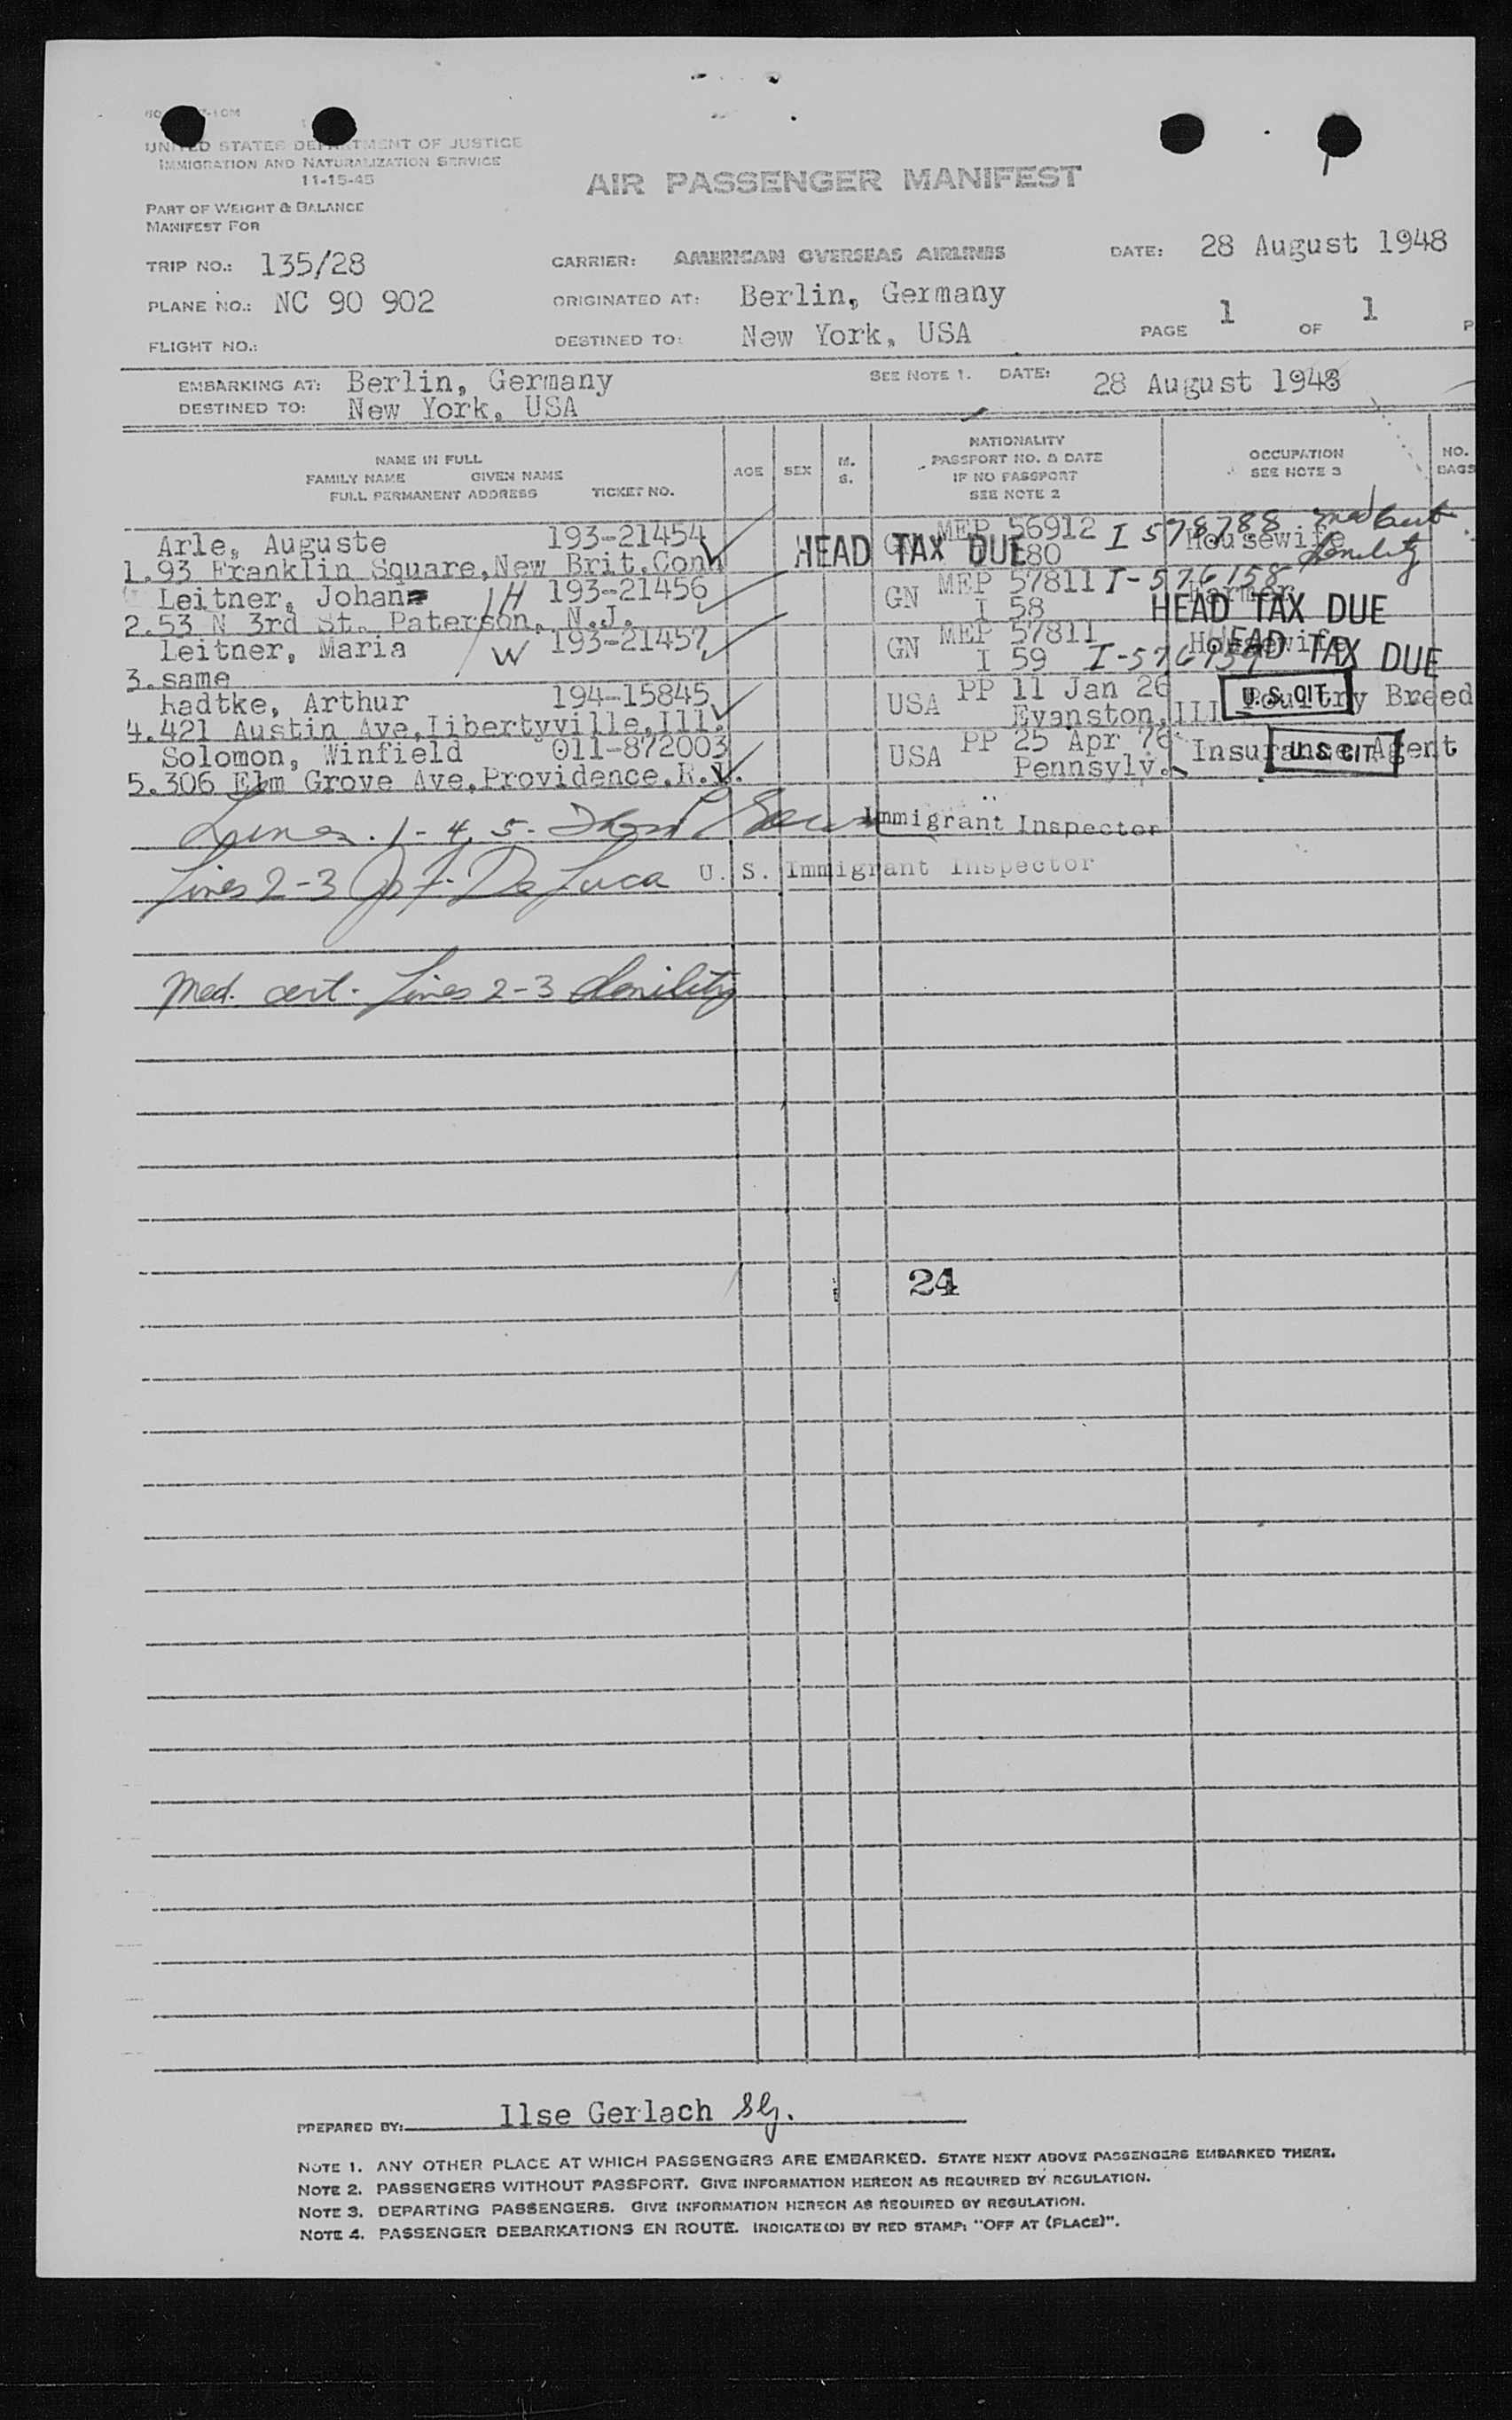 UNITED STATES DEPARTMENT OF JUSTICE
IMMIGRATION AND NATURALIZATION SERVICE
11-15-45
AIR PASSENGER MANIFEST
PART OF WEIGHT & BALANCE
MANIFEST FOR
TRIP NO.: 135/28 CARRIER: AMERICAN OVERSEAS AIRLINES DATE: 28 August 1948
PLANE NO.: NC 90 902 ORIGINATED AT: Berlin, Germany
FLIGHT NO.: DESTINED TO: New York, USA PAGE 1 OF 1 P
EMBARKING AT: Berlin, Germany SEE NOTE 1. DATE: 28 August 1948
DESTINED TO: New York, USA
NAME IN FULL
FAMILY NAME GIVEN NAME
FULL PERMANENT ADDRESS TICKET NO.
AGE
SEX
M.
S.
NATIONALITY
PASSPORT NO. & DATE
IF NO PASSPORT
SEE NOTE 2
OCCUPATION
SEE NOTE 3
NO.
BAGS
Arle, Auguste 193-21454 MEP 56912 I 578788 Housewife med cert
1.93 Franklin Square,New Brit.Conn HEAD TAX DUE 80 senility
Leitner, Johan H 193-21456 GN MEP 57811 I-576158 Farmer
2.53 N 3rd St. Paterson, N.J. I 58 HEAD TAX DUE
Leitner, Maria W 193-21457 GN MEP 57811 Housewife
3.same I 59 I-576159 HEAD TAX DUE
Radtke, Arthur 194-15845 USA PP 11 Jan 26 U.S. CIT. Poultry Breed
4.421 Austin Ave,Libertyville,Ill. Evanston,Ill
Solomon, Winfield 011-872003 USA PP 25 Apr 76 Insurance Agent U.S. CIT.
5.306 Elm Grove Ave,Providence,R.I. Pennsylv.
Lines. 1-4, 5- Immigrant Inspector
Lines 2-3 Jo F. De Luca U. S. Immigrant Inspector
Med. cert. Lines 2-3 senility
24
PREPARED BY: Ilse Gerlach
NOTE 1. ANY OTHER PLACE AT WHICH PASSENGERS ARE EMBARKED. STATE NEXT ABOVE PASSENGERS EMBARKED THERE.
NOTE 2. PASSENGERS WITHOUT PASSPORT. GIVE INFORMATION HEREON AS REQUIRED BY REGULATION.
NOTE 3. DEPARTING PASSENGERS. GIVE INFORMATION HEREON AS REQUIRED BY REGULATION.
NOTE 4. PASSENGER DEBARKATIONS EN ROUTE. INDICATE(D) BY RED STAMP: "OFF AT (PLACE)".